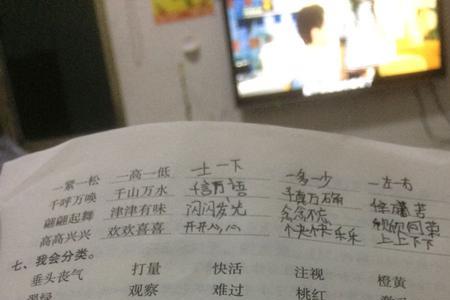 一紧一松 一高一低 一上一下 一多一少 一左一右
千呼万唤 千山万水 千言万语 千真万确
翩翩起舞 津津有味 闪闪发光 念念不忘
高高兴兴 欢欢喜喜 开开心心 快快乐乐 上上下下
七、我会分类。
垂头丧气 打量 快活 注视 橙黄
观察 难过 桃红